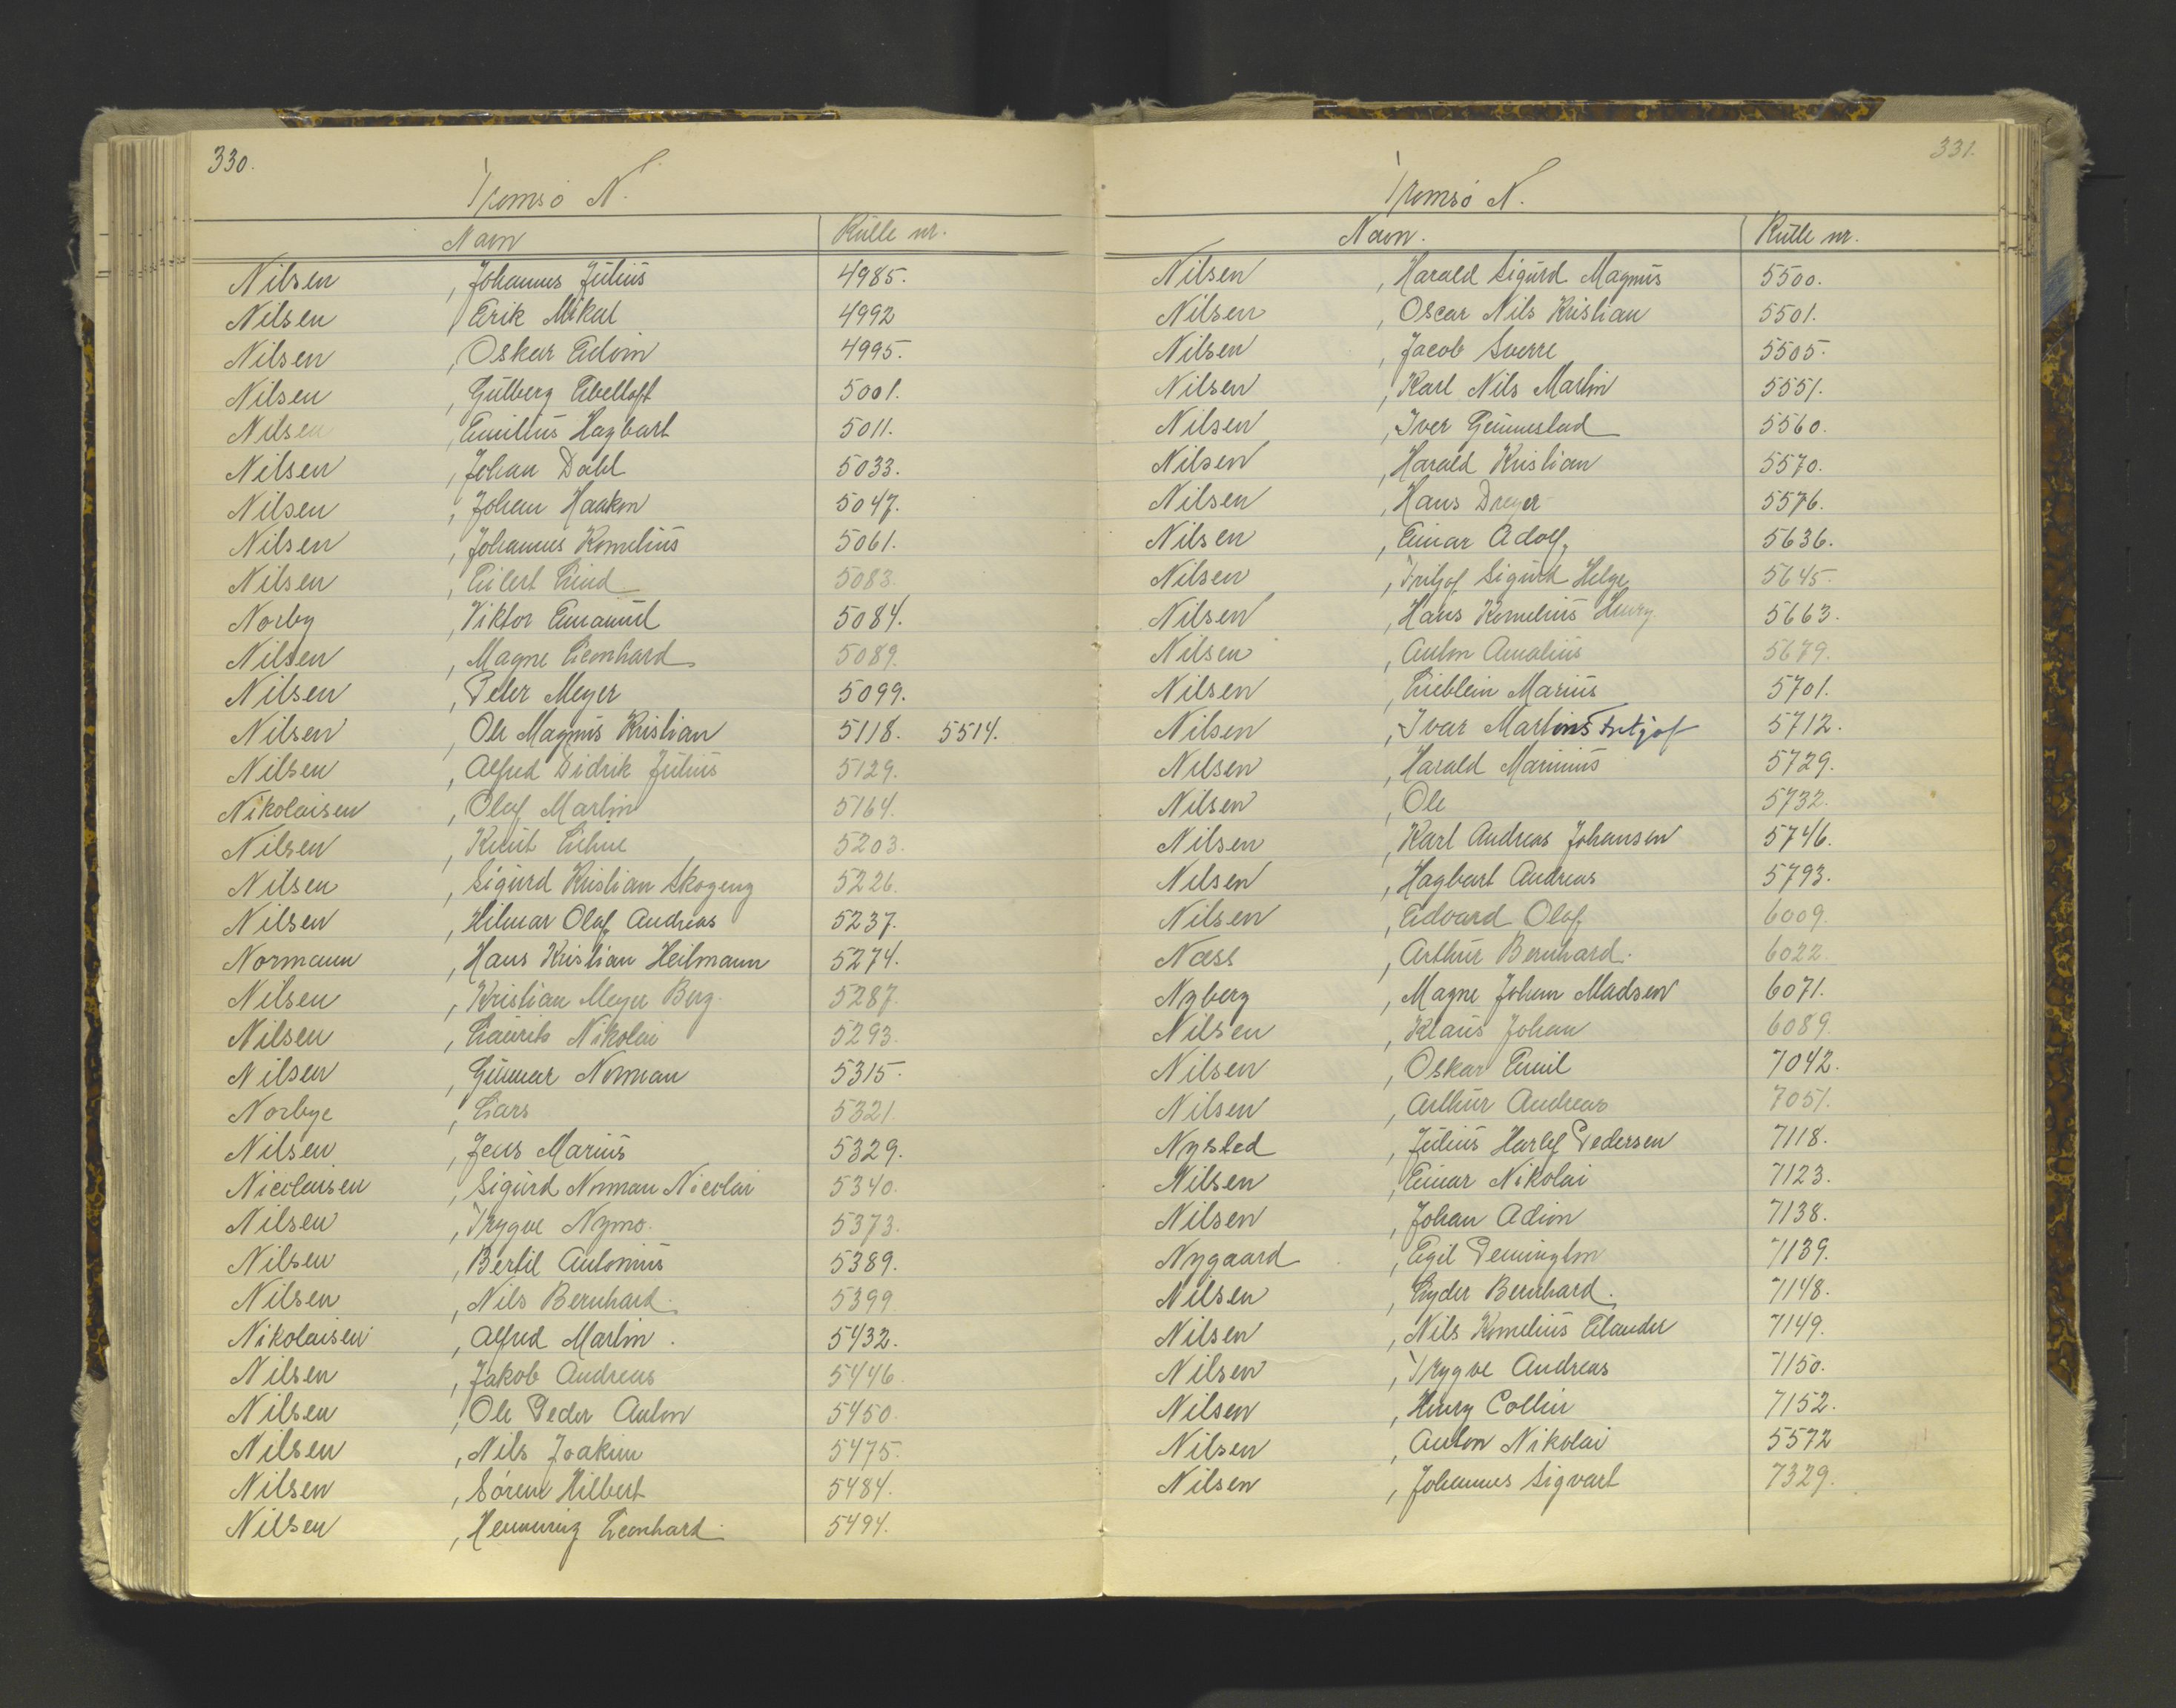 330.
Tromsö N.
Navn Rulle nr.
Nilsen, Johannes Julius 4985.
Nilsen, Erik Mikal 4992
Nilsen, Oskar Edvin 4995.
Nilsen, Gulberg Ebeltoft 5001.
Nilsen, Emilius Hagbart 5011.
Nilsen, Johan Dahl 5033.
Nilsen, Johan Haakon 5047.
Nilsen, Johannes Kornelius 5061.
Nilsen, Eilert Lind 5083.
Norby, Viktor Emanuel 5084.
Nilsen, Magne Leonhard 5089.
Nilsen, Peter Meyer 5099.
Nilsen, Ole Magnus Kristian 5118. 5514.
Nilsen, Alfred Didrik Julius 5129.
Nikolaisen, Olaf Martin 5164.
Nilsen, Knut Lihne 5203.
Nilsen, Sigurd Kristian Skogeng 5226.
Nilsen, Hilmar Olaf Andreas 5237.
Normann, Hans Kristian Heilmann 5274.
Nilsen, Kristian Meyer Berg. 5287.
Nilsen, Laurits Nikolai 5293.
Nilsen, Gunnar Norman 5315.
Norbye, Lars 5321.
Nilsen, Jens Marius 5329.
Nicolaisen, Sigurd Norman Nicolai 5340.
Nilsen, Trygve Nymo. 5373.
Nilsen, Bertil Antonius 5389.
Nilsen, Nils Bernhard. 5399
Nikolaisen, Alfred Martin. 5432.
Nilsen, Jakob Andreas 5446.
Nilsen, Ole Peder Anton 5450.
Nilsen, Nils Joakim 5475.
Nilsen, Sörene Hilbert 5484.
Nilsen, Henning Leonhard. 5494.
331.
Tromsö N.
Navn. Rulle nr.
Nilsen, Harald Sigurd Magnus 5500.
Nilsen, Oscar Nils Kristian 5501.
Nilsen, Jacob Sverre 5505.
Nilsen, Karl Nils Martin 5551.
Nilsen, Iver Gunnestad 5560.
Nilsen, Harald Kristian 5570.
Nilsen, Hans Dreyer 5576.
Nilsen, Einar Adolf 5636.
Nilsen, Fritjof Sigurd Helge 5645.
Nilsen, Hans Kornelius Henry 5663.
Nilsen, Anton Amalius 5679.
Nilsen, Lieblein Marius 5701.
Nilsen, Ivar Martins Fritjof 5712.
Nilsen, Harald Marinius 5729.
Nilsen, Ole 5732.
Nilsen, Karl Andreas Johansen 5746.
Nilsen, Hagbart Andreas 5793.
Nilsen, Edvard Olaf 6009.
Næss, Arthur Bernhard. 6022.
Nyberg, Magne Johan Madsen 6071.
Nilsen, Klaus Johan 6089.
Nilsen, Oskar Emil 7042.
Nilsen, Arthur Andreas 7051.
Nysted, Julius Harlef Pedersen 7118.
Nilsen, Einar Nikolai 7123.
Nilsen, Johan Adion 7138.
Nygaard, Egil Pennington 7139.
Nilsen, Lyder Bernhard. 7148.
Nilsen, Nils Kornelius Elander 7149.
Nilsen, Trygve Andreas 7150.
Nilsen, Henry Collin 7152.
Nilsen, Anton Nikolai 5572
Nilsen, Johannes Sigvart 7329.